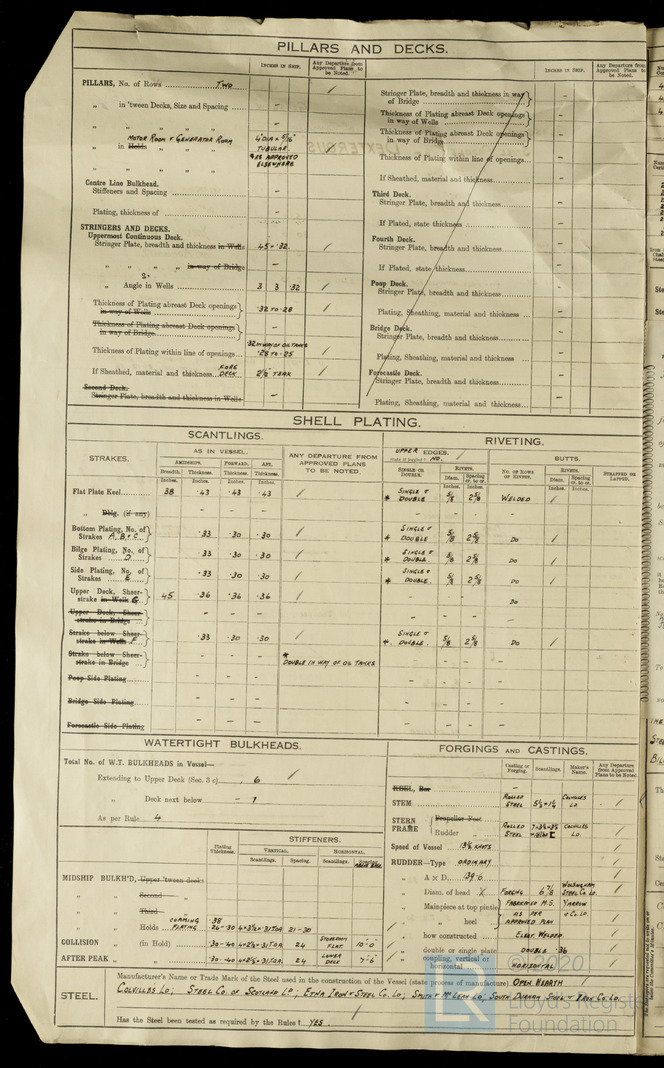 PILLARS AND DECKS.
INCHES IN SHIP.
Any Departure from Approved Plans to be Noted.
PILLARS, No. of Rows TWO
" in 'tween Decks, Size and Spacing –
" " " " –
MOTOR ROOM & GENERATOR ROOM
" in Holds " " 4" DIA × 5/16" TUBULAR
AS APPROVED ELSEWHERE
" " " "
Centre Line Bulkhead.
Stiffeners and Spacing –
Plating, thickness of –
STRINGERS AND DECKS.
Uppermost Continuous Deck.
Stringer Plate, breadth and thickness in Wells 45 × .32
" " " " in way of Bridge –
" Angle in Wells 3 3 .32
Thickness of Plating abreast Deck openings in way of Wells .32 TO .28
Thickness of Plating abreast Deck openings in way of Bridge –
.32 IN WAY OF OIL TANKS
Thickness of Plating within line of openings .28 TO .25
If Sheathed, material and thickness FORE DECK 2½" TEAK
Second Deck.
Stringer Plate, breadth and thickness in Wells –
INCHES IN SHIP.
Any Departure from Approved Plans to be Noted.
Stringer Plate, breadth and thickness in way of Bridge –
Thickness of Plating abreast Deck openings in way of Wells –
Thickness of Plating abreast Deck openings in way of Bridge –
Thickness of Plating within line of openings –
If Sheathed, material and thickness –
Third Deck.
Stringer Plate, breadth and thickness –
If Plated, state thickness –
Fourth Deck.
Stringer Plate, breadth and thickness –
If Plated, state thickness –
Poop Deck.
Stringer Plate, breadth and thickness –
Plating, Sheathing, material and thickness –
Bridge Deck.
Stringer Plate, breadth and thickness –
Plating, Sheathing, material and thickness –
Forecastle Deck.
Stringer Plate, breadth and thickness –
Plating, Sheathing, material and thickness –
SHELL PLATING.
SCANTLINGS.
RIVETING.
STRAKES.
AS IN VESSEL.
AMIDSHIPS. FORWARD. AFT.
Breadth. Thickness. Thickness. Thickness.
Inches. Inches. Inches. Inches.
ANY DEPARTURE FROM APPROVED PLANS TO BE NOTED.
UPPER EDGES.
State if joggled? NO.
BUTTS.
SINGLE OR DOUBLE.
RIVETS.
Diam. Spacing cr. to cr.
Inches. Inches.
NO. OF ROWS OF RIVETS.
RIVETS.
Diam. Spacing cr. to cr.
Inches. Inches.
STRAPPED OR LAPPED.
Flat Plate Keel 38 .43 .43 .43 * SINGLE & DOUBLE 5/8 2 5/8 WELDED
" Dblg. (if any) – – – – –
Bottom Plating, No. of Strakes A, B & C .33 .30 .30 * SINGLE & DOUBLE 5/8 2 5/8 DO
Bilge Plating, No. of Strakes D .33 .30 .30 * SINGLE & DOUBLE. 5/8 2 5/8 DO
Side Plating, No. of Strakes E .33 .30 .30 * SINGLE & DOUBLE. 5/8 2 5/8 DO
Upper Deck, Sheerstrake in Wells G 45 .36 .36 .36 – – DO
Upper Deck, Sheerstrake in Bridge – – – –
Strake below Sheerstrake in Wells F .33 .30 .30 * SINGLE & DOUBLE. 5/8 2 5/8 DO
Strake below Sheerstrake in Bridge – – – –
* DOUBLE IN WAY OF OIL TANKS
Poop Side Plating – – – –
Bridge Side Plating – – – –
Forecastle Side Plating – – – –
WATERTIGHT BULKHEADS.
Total No. of W.T. BULKHEADS in Vessel—
Extending to Upper Deck (Sec. 3 c) 6
" Deck next below – 1
As per Rule 4
Plating Thickness.
STIFFENERS.
VERTICAL. HORIZONTAL.
Scantlings. Spacing. Scantlings. Spacing.
MIDSHIP BULKH'D, Upper 'tween decks
" " Second "
" " Third "
COAMING .38
" " Holds PLATING 21-30
COLLISION " (in Hold) .30-.40 24 STOREROOM FLAT. 10'-0"
AFTER PEAK " " 24 LOWER DECK 7'-6"
FORGINGS AND CASTINGS.
Casting or Forging. Scantlings. Maker's Name. Any Departure from Approved Plans to be Noted.
KEEL, Bar –
STEM ROLLED STEEL 5½ × 1½ COLVILLES LD
STERN FRAME Propeller Post
Rudder " ROLLED STEEL COLVILLES LD.
Speed of Vessel 13½ KNOTS
RUDDER—Type ORDINARY
" A × D 139.6
" Diam. of head FORGING 6 7/8 WOLSINGHAM STEEL CO. LD
" Mainpiece at top pintle FABRICATED M.S. YARROW & CO. LD
" " heel AS PER APPROVED PLAN
" how constructed ELECT. WELDED.
" double or single plate DOUBLE .36
" coupling, vertical or horizontal HORIZONTAL
STEEL.
Manufacturer's Name or Trade Mark of the Steel used in the construction of the Vessel (state process of manufacture) OPEN HEARTH
COLVILLES LD; STEEL CO. OF SCOTLAND LD; ETNA IRON & STEEL CO. LD; SMITH & MCLEAN LD; SOUTH DURHAM STEEL & IRON CO. LD.
Has the Steel been tested as required by the Rules? YES.
© 2020
Lloyd's Register
Foundation
LR